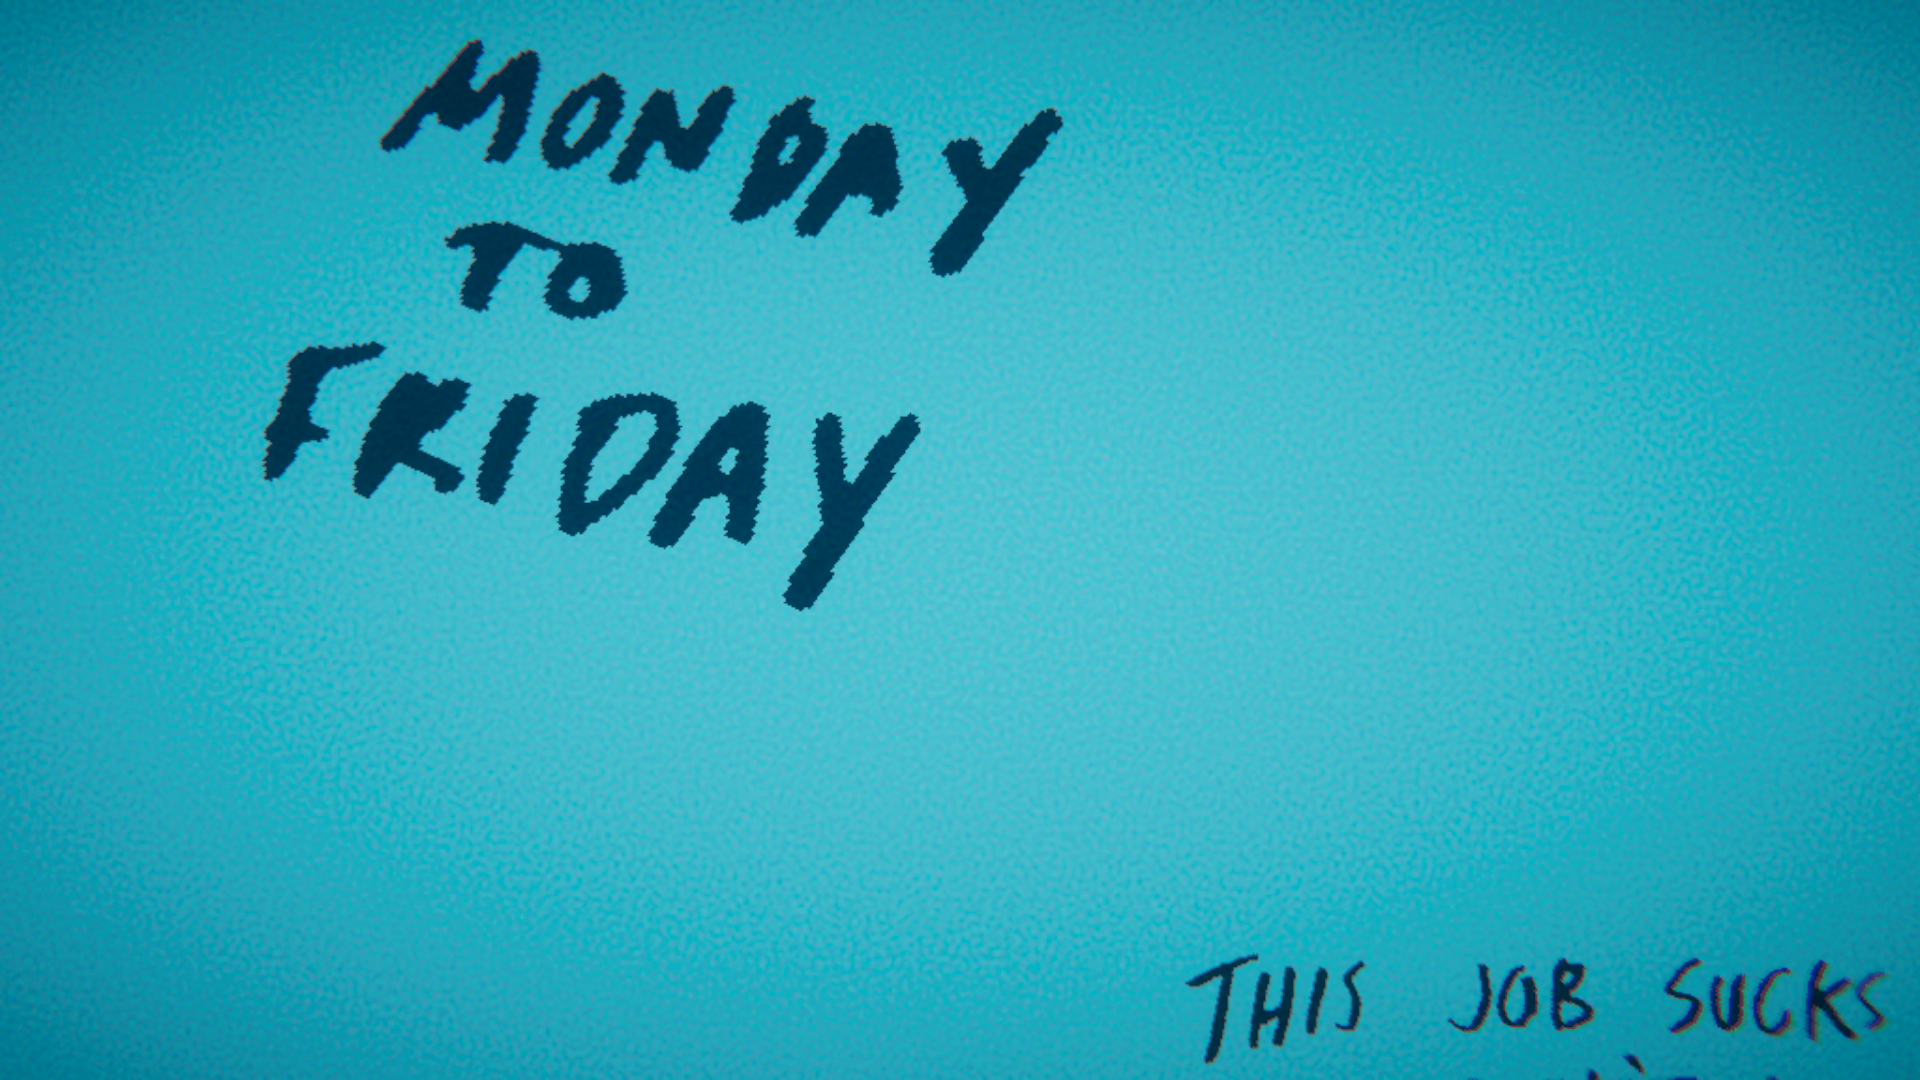 MONDAY
TO
FRIDAY
THIS JOB SUCKS